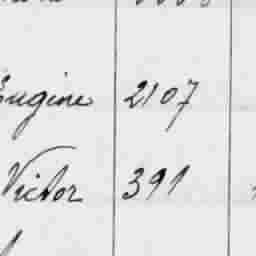 Eugine 2107
Victor 391